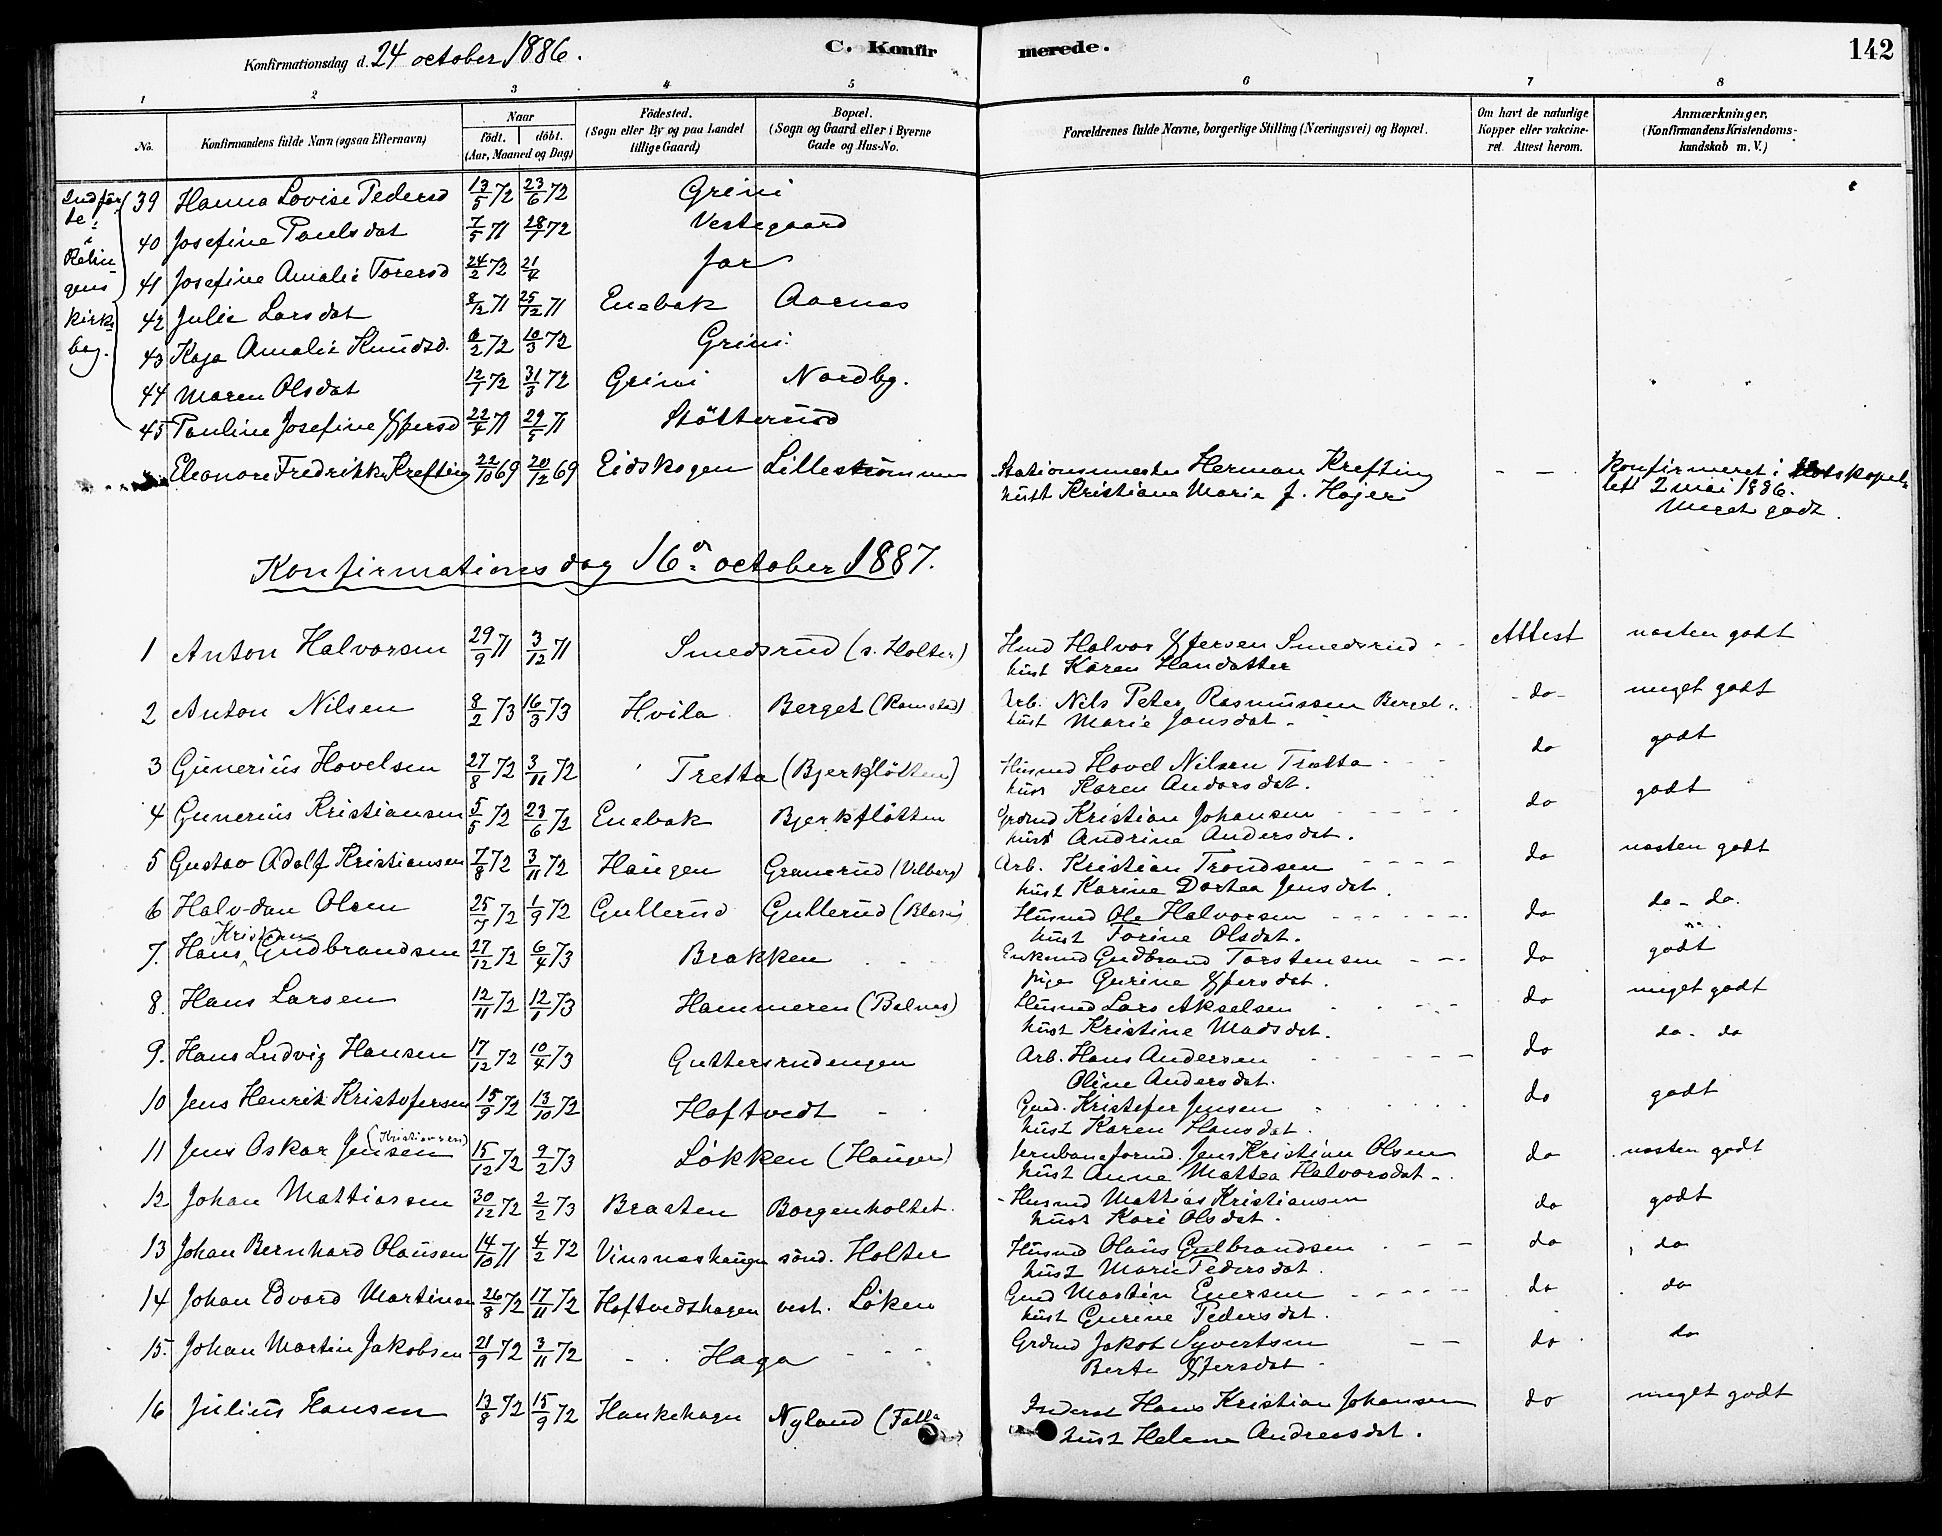 Konfirmationsdag d. 24 october 1886.
C. Konfirmerede.
142
1 2 3 4 5 6 7 8
No.
Konfirmandens fulde Navn (ogsaa Efternavn)
Naar
født. døbt.
(Aar, Maaned og Dag)
Fødested.
(Sogn eller By og paa Landet
tillige Gaard)
Bopæl.
(Sogn og Gaard eller i Byerne
Gade og Hus-No.
Forældrenes fulde Navne, borgerlige Stilling (Næringsvei) og Bopæl.
Om havt de naturlige
Kopper eller vakcine-
ret. Attest herom.
Anmærkninger,
(Konfirmandens Kristendoms-
kundskab m. V.)
Indför
te i
Rælin-
gens
kirke
bog.
39 Hanna Lovise Pedersd 13/5 72 23/6 72 Grini
40 Josefine Paulsdat 7/5 71 28/7 72 Vestegaard
41 Josefine Amalie Torersd 24/2 72 21/4 Jar
42 Julie Larsdat 8/12 71 25/12 71 Enebak Aarnes
43 Kaja Amalie Knudsd. 6/2 72 10/3 72 Grini
44 Maren Olsdat 12/1 72 31/3 72 Grini Nordby.
45 Pauline Josefine Effersd 22/4 71 29/5 71 Støtterud
Eleonore Fredrikke Krefting 22/10 69 20/12 69 Eidskogen Lillestrømmen Stationsmester Herman Krefting - - Konfirmeret i Slotskapel-
hust Kristiane Marie f. Hojer let 2 mai 1886.
Meget godt.
Konfirmationsdag 16de october 1887.
1 Anton Halvorsen 29/9 71 3/12 71 Smedsrud (s. Holter) Husmd Halvor Effersen Smedsrud Attest næsten godt
hust Karen Hansdatter
2 Anton Nilsen 8/2 73 16/3 73 Hvila Berget (Ramstad) Arb. Nils Peter Rasmussen Berget - do - meget godt
hust Marie Jonsdat.
3 Gunerius Hovelsen 27/8 72 3/11 72 Tretta (Bjerkfløtten) Husmd Hovel Nilsen Trætta do godt
hust Karen Andersdat.
4 Gunerius Kristiansen 5/5 72 23/6 72 Enebak Bjerkfløtten Grdmd Kristian Johansen do godt
hust Andrine Andersdat.
5 Gustav Adolf Kristiansen 7/8 72 3/11 72 Haugen Granerud (Vilberg) Arb. Kristian Trondsen do næsten godt
hust Karine Dortea Jensdat.
6 Halvdan Olsen 25/7 72 1/9 72 Gullerud Gullerud Husmd Ole Halvorsen do do - do.
hust Torine Olsdat.
Kristian
7. Hans Gudbrandsen 27/12 72 6/4 73 Brakken Enkemd Gudbrand Torstensen do godt
pige Gurine Effersdat.
8. Hans Larsen 12/11 72 12/1 73 Hammeren (Bolnes) Husmd Lars Akselsen do meget godt
hust Kristine Madsdat.
9. Hans Ludvig Hansen 17/12 72 10/4 73 Guttersrudengen Arb. Hans Andersen do do - do
Oline Andersdat.
10 Jens Henrik Kristofersen 15/9 72 13/10 72 Hoftvedt Gmd. Kristofer Jensen do godt
hust Karen Hansdat.
11 Jens Oskar Jensen (Kristiansen) 15/12 72 9/2 73 Løkken (Hauger) Jernbaneformd. Jens Kristian Olsen do næsten godt
hust Anne Mattea Halvorsdat.
12 Johan Mattiassen 30/12 72 2/2 73 Braaten Borgenholtet. Husmd Mattias Kristiansen do godt
hust Kari Olsdat.
13 Johan Bernhard Olausen 14/10 71 4/2 72 Vinsneshaugen sønd. Holter Husmd Olaus Gulbrandsen do do
hust Marie Pedersdat.
14 Johan Edvard Martinsen 26/8 72 17/11 72 Hoftvedshagen vest. Løken Gmd Martin Enersen do do
hust Gurine Pedersdat.
15. Johan Martin Jakobsen 21/9 72 3/11 72 Haga Grdmd Jakob Syvertsen do do
Berte Effersdat
16 Julius Hansen 13/8 72 15/9 72 Hankehagen Nyland (Falla Inderst Hans Kristian Johansen do meget godt
hust Helene Andreasdat.